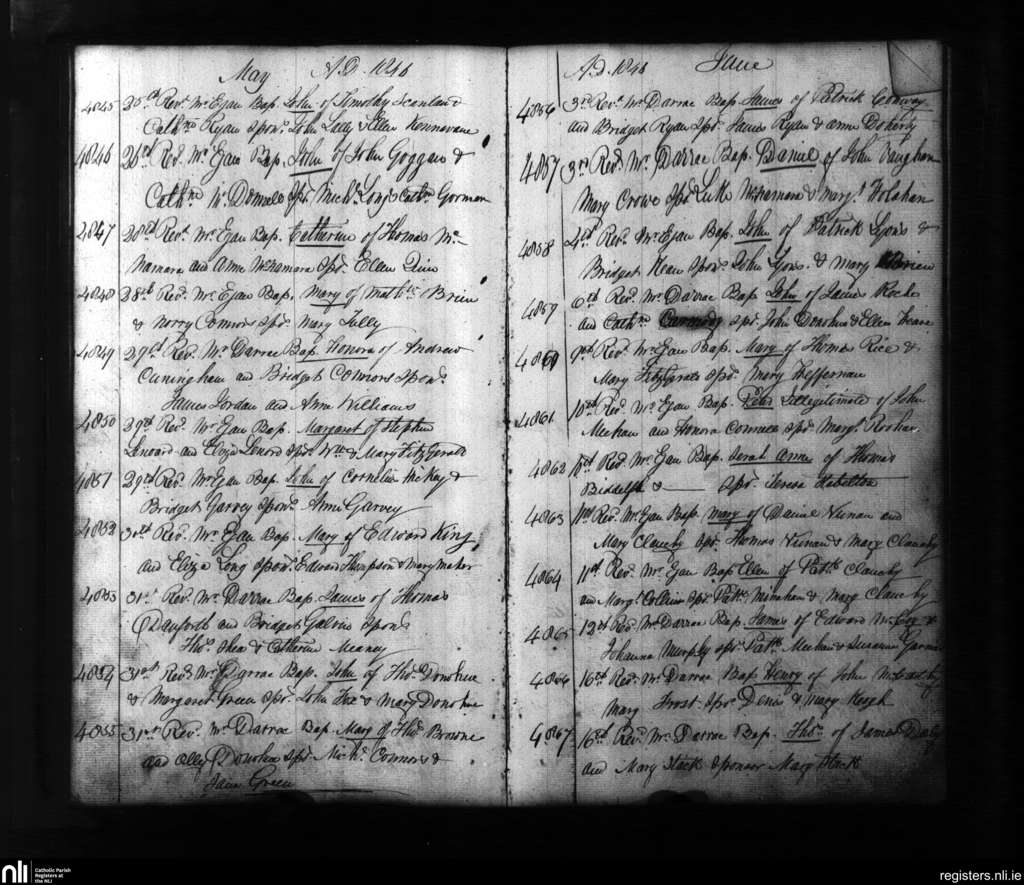 May A.D. 1846
4845 25th Revd. Mr. Egan Bap. John of Timothy Scanlan &
Cathne Ryan Sponr. John Lally & Ellen Kennavane
4846 26th Revd. Mr. Egan Bap. John of John Goggan &
Cathne Mc Donnell Spr. Michl. Long & Cathn Gorman
4847 28th Revd. Mr. Egan Bap. Catherine of Thomas Mc
Namara and Anne McNamara Spr. Ellen Quin
4848 28th Revd. Mr. Egan Bap. Mary of Brien
& Norry Connors Spr. Mary Tully
4849 29th Revd. Mr. Darrac Bap. Honora of Andrew
Cuningham and Bridget Connors Sponr.
James Jordan and Ann Williams
4850 29th Revd. Mr. Egan Bap. Margaret of Stephen
Lenoard and Eliza Lenord Spr. Wm. & Mary FitzGerald
4851 29th Revd. Mr. Egan Bap. John of Cornelius McKay &
Bridget Garvey Sponr. Ann Garvey
4852 31st Revd. Mr. Egan Bap. Mary of Edward King
and Eliza Long Sponr. Edward Thompson & Mary Maher
4853 31st Revd. Mr. Darrac Bap. James of Thomas
Danforth and Bridget Galvin Sponr.
Thos. Shea & Catherine Meaney
4854 31st Revd. Mr. Darrac Bap. John of Thos. Donohue
& Margaret Green Spr. John Fox & Mary Donohue
4855 31st Revd. Mr. Darrac Bap. Mary of Thos. Browne
and Ally Donohue Spr. Michl. Connors &
Jane Green
A.D. 1846 June
4856 3rd Revd. Mr. Darrac Bap. James of Patrick Conway
and Bridget Ryan Spr. James Ryan & Anne Doherty
4857 3rd Revd. Mr. Darrac Bap. Daniel of John Vaughan
Mary Crowe Spr. Luke McNamara & Margt. Holahan
4858 4th Revd. Mr. Egan Bap. John of Patrick Lyons &
Bridget Kean Sponr. John Lyons & Mary Brien
4859 6th Revd. Mr. Darrac Bap. John of James Roche
and Cathne Carmody Spr. John Donohue & Ellen Keane
4860 9th Revd. Mr. Egan Bap. Mary of Thomas Rice &
Mary FitzGerald Spr. Mary Heffernan
4861 10th Revd. Mr. Egan Bap. Peter Illegitimate of John
Meehan and Honora Connell Spr. Margt.
4862 Revd. Mr. Egan Bap. Sarah Anne of Thomas
Biddelph & — Spr. Teresa
4863 11th Revd. Mr. Egan Bap. Mary of Daniel Neenan and
Mary Clanchy Spr. Thomas Neenan & Mary Clanchy
4864 11th Revd. Mr. Egan Bap Ellen of Patk. Clanchy
and Margt. Collins Spr. Patk. Minahan & Mary Clanchy
4865 12th Revd. Mr. Darrac Bap. James of Edward &
Johanna Murphy spr. Patk. Meehan & Susanna
4866 16th Revd. Mr. Darrac Bap Henry of John McCarthy
Mary Frost Spr. Denis & Mary Keogh
4867 16th Revd. Mr. Darrac Bap. Thos. of James Darcy
and Mary Hack Sponsor Mary Hack
nli Catholic Parish
Registers at
the NLI
registers.nli.ie